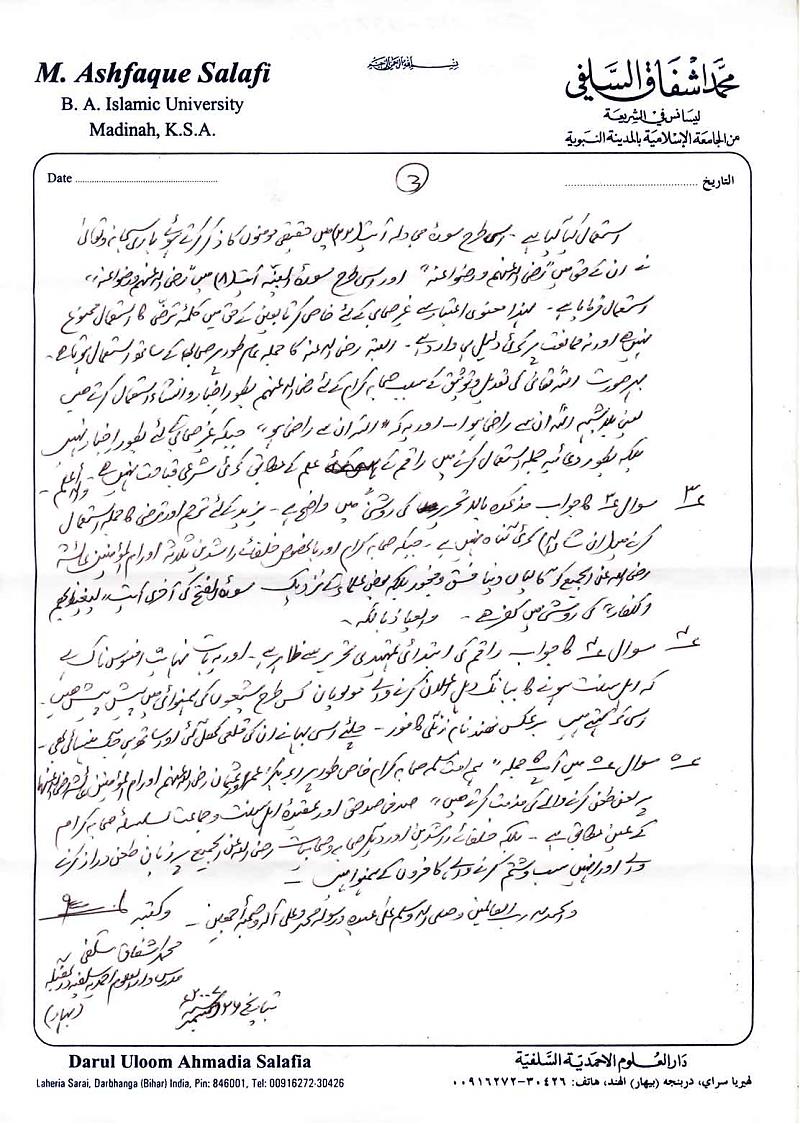 بسم الله الرحمن الرحيم
M. Ashfaque Salafi
B. A. Islamic University
Madinah, K.S.A.
محمد اشفاق السلفي
ليسانس في الشريعة
من الجامعة الإسلامية بالمدينة النبوية
Date
3
التاريخ
استعمال کیا گیا ہے ۔ اسی طرح سورۂ مجادلہ آیت (۲۲) میں حقیقی مومنوں کا ذکر کرتے ہوئے باری سبحانہ وتعالیٰ
نے ان کے حق میں "رضی اللہ عنہم ورضوا عنہ" اور اسی طرح سورۃ البینہ آیت (۸) میں "رضی اللہ عنہم ورضوا عنہ"
استعمال فرمایا ہے ۔ لہذا معنوی اعتبار سے غیر صحابی کے لئے خاص کر تابعین کے حق میں کلمۂ ترضی کا استعمال ممنوع
نہیں ہے اور نہ ممانعت پر کوئی دلیل ہی وارد ہے ۔ البتہ رضی اللہ عنہ کا جملہ عام طور پر صحابہ کے ساتھ استعمال ہوتا ہے ۔
بہر صورت اللہ تعالیٰ کی تعدیل وتوثیق کے سبب صحابہ کرام کے لئے رضی اللہ عنہم بطور اخبار وانشاء استعمال کرتے ہیں
یعنی بلاشبہ اللہ ان سے راضی ہوا ۔ اور یہ کہ "اللہ ان سے راضی ہو" جبکہ غیر صحابی کے لئے بطور اخبار نہیں
بلکہ بطور دعائیہ جملہ استعمال کرنے میں راقم کے علم کے مطابق کوئی شرعی قباحت نہیں ہے ۔ واللہ أعلم ۔
ع۳ سوال ع۳ کا جواب مذکورہ بالا تحریر کی روشنی میں واضح ہے ۔ یزید کے لئے ترحم اور ترضی کا جملہ استعمال
کرنے میں (ان شاء اللہ) کوئی گناہ نہیں ہے ۔ جبکہ صحابہ کرام اور بالخصوص خلفائے راشدین ثلاثہ اور ام المؤمنین عائشہ
رضی اللہ عن الجمیع کو گالیاں دینا فسق وفجور بلکہ بعض علماء کے نزدیک سورۃ الفتح کی آخری آیت "لیغیظ بہم
الکفار" کی روشنی میں کفر ہے ۔ والعیاذ باللہ ۔
ع۴ سوال ع۴ کا جواب راقم کی ابتدائی تمہیدی تحریر سے ظاہر ہے ۔ اور یہ بات نہایت افسوس ناک ہے
کہ اہل سنت ہونے کا ببانگ دہل اعلان کرنے والے مولویان کس طرح شیعوں کی ہمنوائی میں پیش پیش ہیں ۔
اسی کو کہتے ہیں برعکس نہند نام زنگی کافور ۔ چلئے اسی بہانے ان کی قلعی کھل گئی اور ساتھ ہی جگ ہنسائی بھی ۔
ع۵ سوال ع۵ میں آپ کا جملہ "ہم امت مسلمہ صحابہ کرام خاص طور پر ابوبکر وعمر وعثمان رضی اللہ عنہم اور ام المؤمنین عائشہ رضی اللہ عنہا
پر لعن طعن کرنے والے کی مذمت کرتے ہیں" صد فی صد حق اور عقیدۂ اہل سنت وجماعت بسلسلۂ صحابہ کرام
کے عین مطابق ہے ۔ بلکہ خلفائے راشدین اور دیگر صحابہ وصحابیات رضی اللہ عن الجمیع پر زبان طعن دراز کرنے
والے اور انہیں سب وشتم کرنے والے کافروں کے ہمنوا ہیں ۔
والحمد للہ رب العالمین وصلی اللہ وسلم علی عبدہ ورسولہ محمد وعلی آلہ وصحبہ أجمعین ۔ وکتبہ
محمد اشفاق سلفی
مدرس دار العلوم احمدیہ سلفیہ دربھنگہ
(بہار)
بتاریخ ۲۶ دسمبر
Darul Uloom Ahmadia Salafia
Laheria Sarai, Darbhanga (Bihar) India, Pin: 846001, Tel: 00916272-30426
دار العلوم الاحمدية السلفية
لهيريا سراي، دربنجه (بيهار) الهند، هاتف: ٣٠٤٢٦-٠٠٩١٦٢٧٢